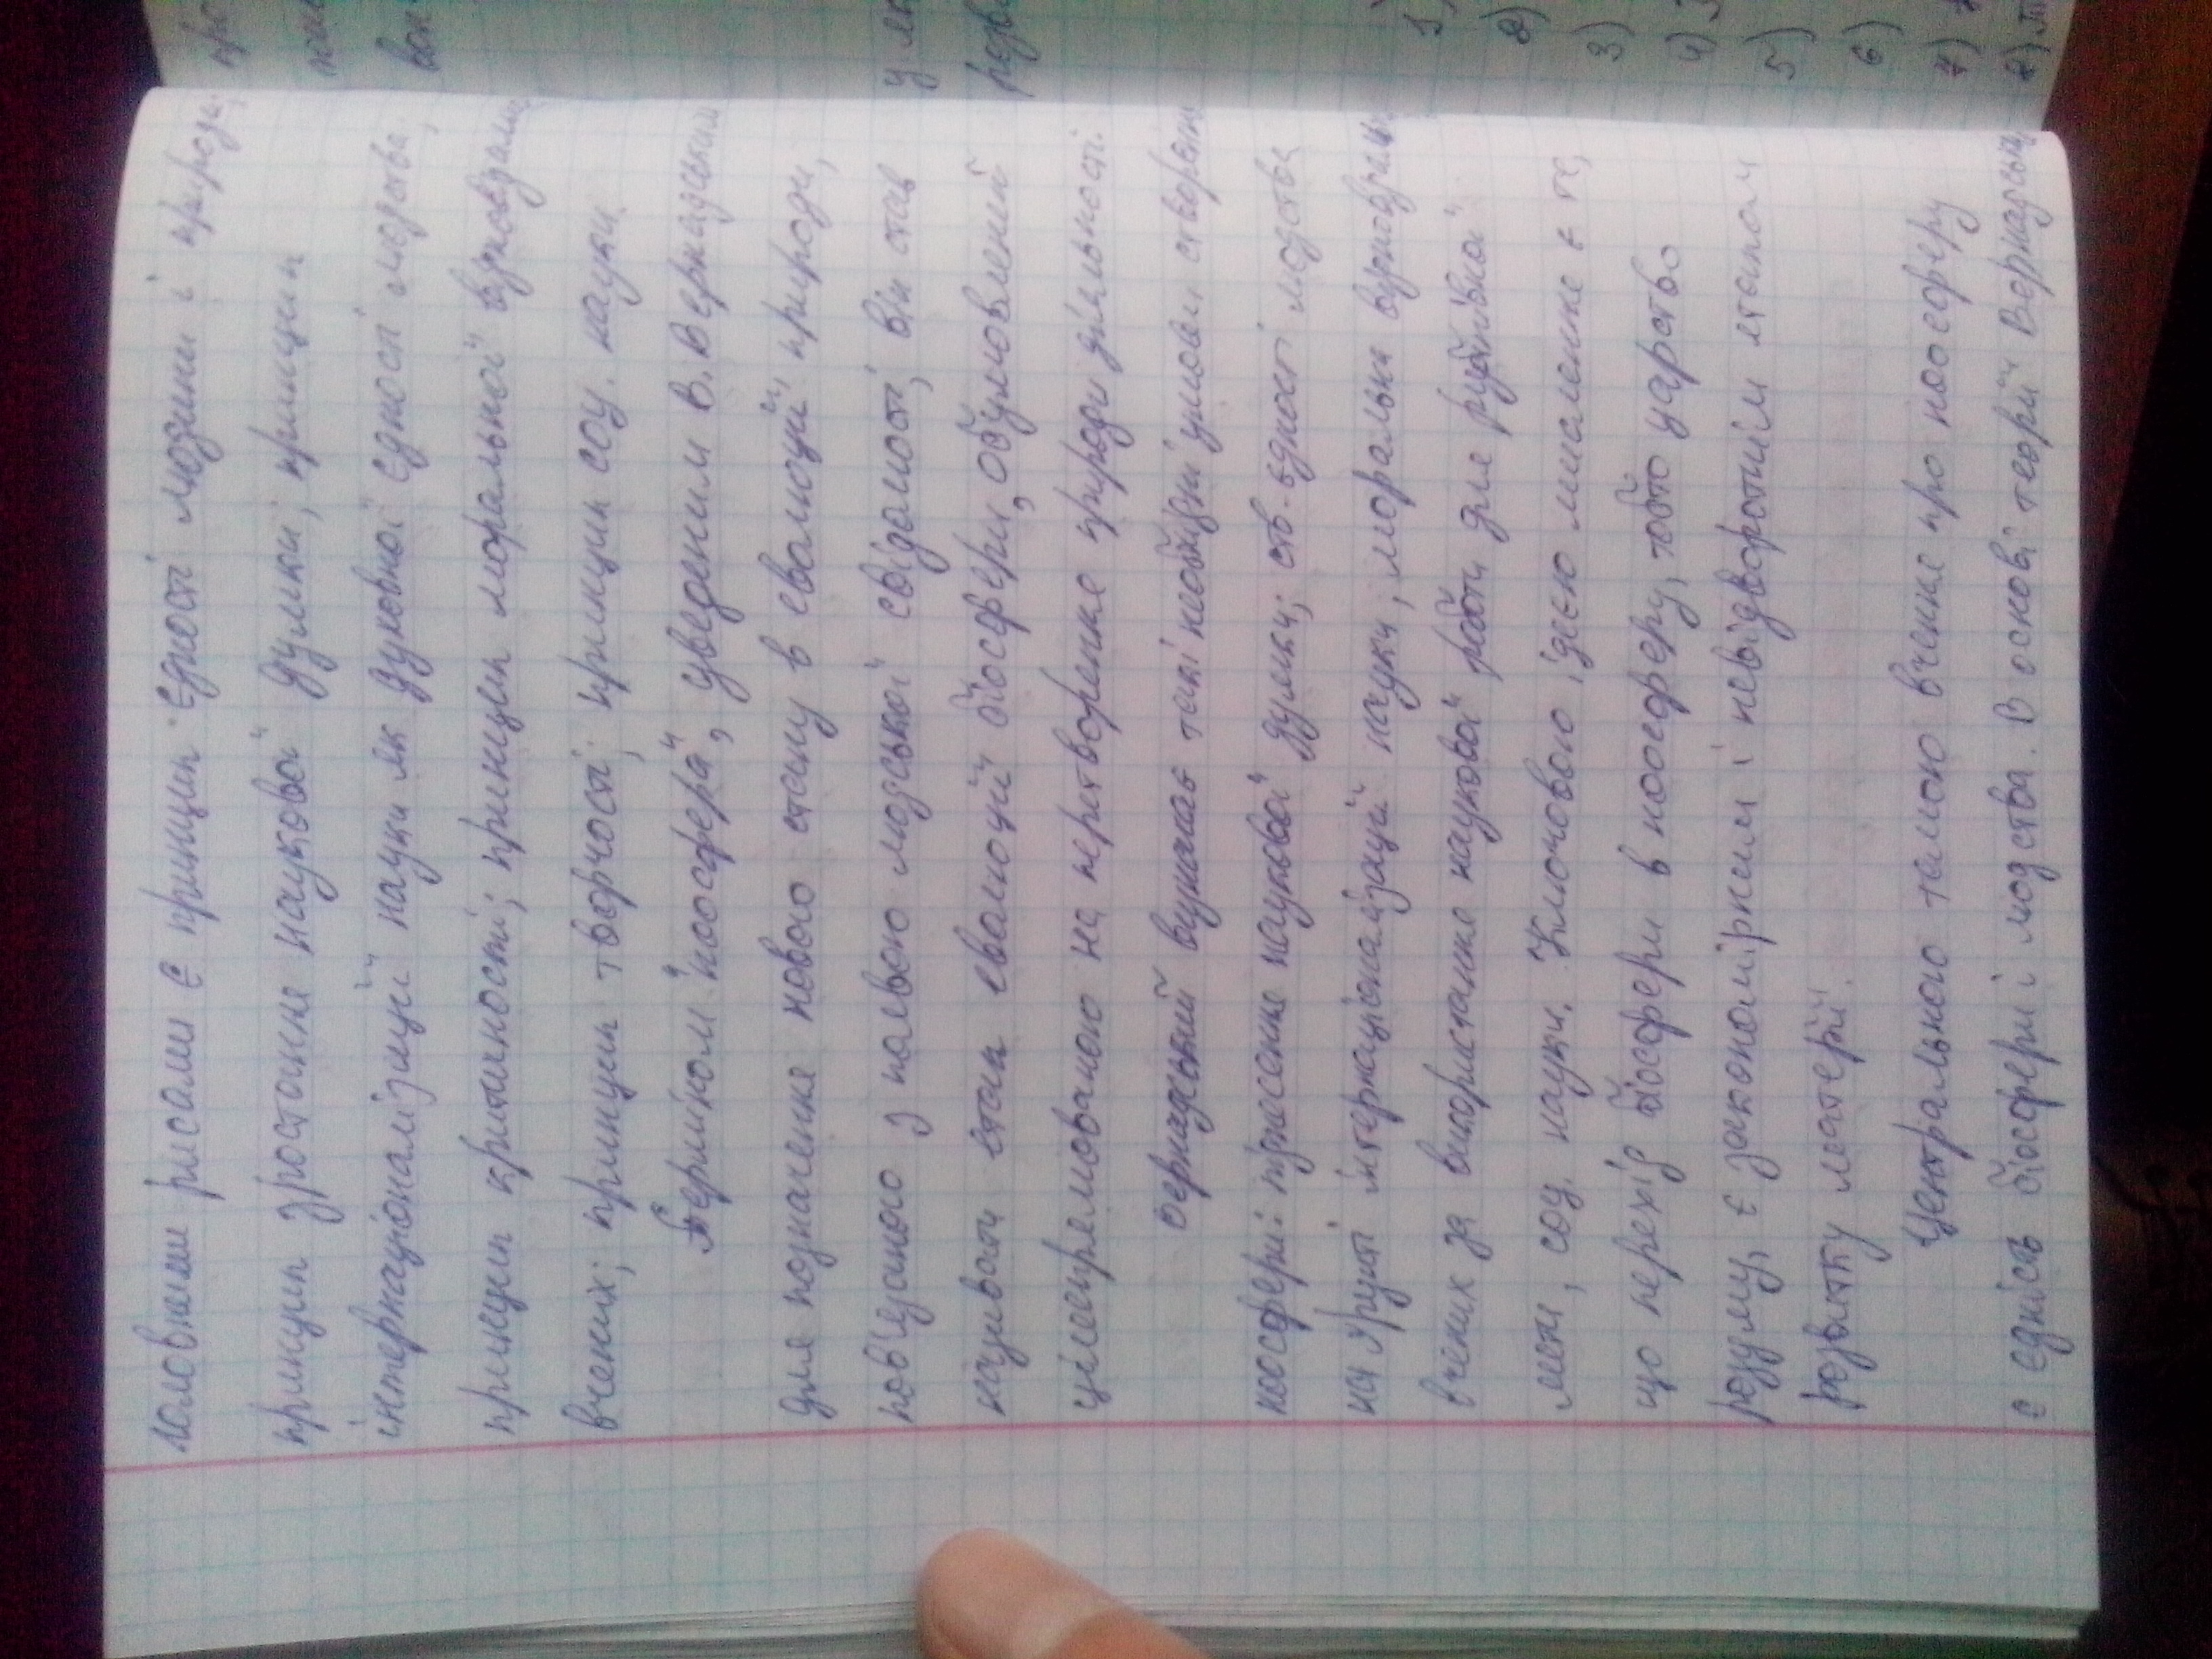 головними рисами є принцип єдності людини і природи;
принцип зростання наукової думки; принцип
інтернаціоналізації науки як духовної єдності людства;
принцип критичності; принцип моральної відповідальн
вчених; принцип творчості; принцип соц. науки.
Терміном "ноосфера", уведеним В. Вернадським
для позначення нового стану в еволюції природи,
пов'язаного з появою людської свідомості, він став
називати етап еволюції біосфери, обумовлений
цілеспрямованою на перетворення природи діяльності.
Вернадський визначає такі необхідні умови створення
ноосфери: піднесення наукової думки; ств. єдності людства
на ґрунті інтернаціоналізації науки, моральна відповідальн
вчених за використання наукової роботи для руйнівної
мети, соц. науки. Ключовою ідеєю мислення є те,
що перехід біосфери в ноосферу, тобто царство
розуму, є закономірним і невідворотнім етапом
розвитку матерії.
Центрального темою вчення про ноосферу
є єдність біосфери і людства. В основі теорії Вернадськ
про
вон
у як
розв
1)
2)
3)
4) З
5)
6)
7)
8)